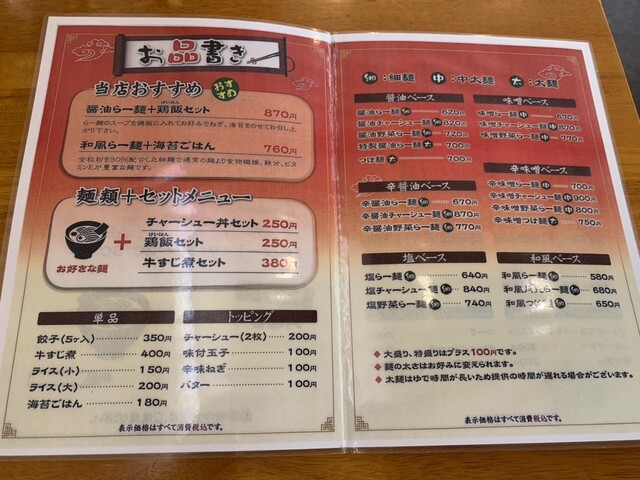 お品書き
当店おすすめ
おすすめ
醤油らー麺+鶏飯セット 870円
けいはん
らー麺のスープを鶏飯に入れてお好みでねぎ、海苔をのせてお召し上がり下さい。
和風らー麺+海苔ごはん 760円
全粒粉を30%配合した細麺で通常の麺より食物繊維、鉄分、ビタミンEが豊富な麺です。
麺類+セットメニュー
お好きな麺
+
チャーシュー丼セット 250円
けいはん
鶏飯セット 250円
牛すじ煮セット 380円
単品
餃子(5ヶ入) 350円
牛すじ煮 400円
ライス(小) 150円
ライス(大) 200円
海苔ごはん 180円
トッピング
チャーシュー(2枚) 200円
味付玉子 100円
辛味ねぎ 100円
バター 100円
表示価格はすべて消費税込です。
細:細麺 中:中太麺 太:太麺
醤油ベース
醤油らー麺 細 620円
醤油チャーシュー麺 細 820円
醤油野菜らー麺 細 720円
特製醤油らー麺 太 700円
つけ麺 太 700円
味噌ベース
味噌らー麺 中 670円
味噌チャーシュー麺 中 870円
味噌野菜らー麺 中 770円
辛醤油ベース
辛醤油らー麺 細 670円
辛醤油チャーシュー麺 細 870円
辛醤油野菜らー麺 細 770円
辛味噌ベース
辛味噌らー麺 中 700円
辛味噌チャーシュー麺 中 900円
辛味噌野菜らー麺 中 800円
辛味噌つけ麺 太 750円
塩ベース
塩らー麺 細 640円
塩チャーシュー麺 細 840円
塩野菜らー麺 細 740円
和風ベース
和風らー麺 細 580円
和風 らー麺 細 680円
和風つけ麺 細 650円
◆大盛り、特盛りはプラス100円です。
◆麺の太さはお好みに変えられます。
◆太麺はゆで時間が長いため提供の時間が遅れる場合がございます。
表示価格はすべて消費税込です。